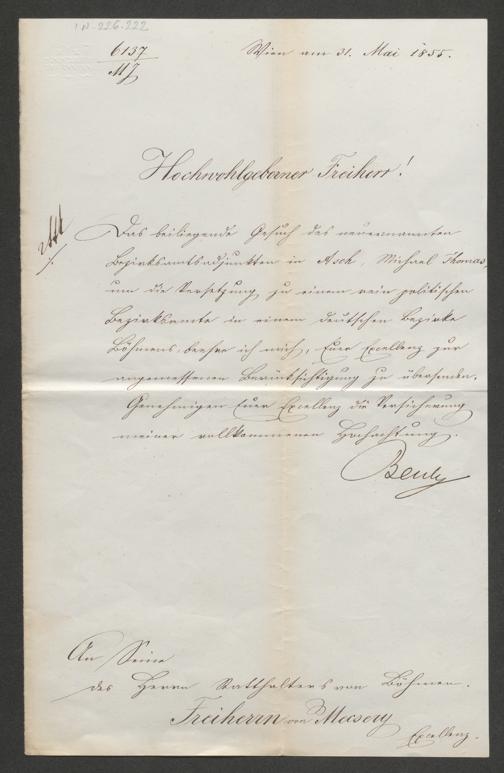 IN-226.222
6137
MJ
Wien am 31. Mai 1855.
Hochwohlgeborner Freiherr!
Das beiliegende Gesuch des neuernannten
Bezirksamtsadjunkten in Asch, Michael Thomas,
um die Versetzung zu einem rein politischen
Bezirksamte in einem deutschen Bezirke
Böhmens, beehre ich mich, Euer Excellenz zur
angemessenen Berücksichtigung zu übersenden.
Genehmigen Euer Excellenz die Versicherung
meiner vollkommenen Hochachtung.
An Seine
des Herrn Statthalters von Böhmen.
Freiherrn von Mecsery
Excellenz.